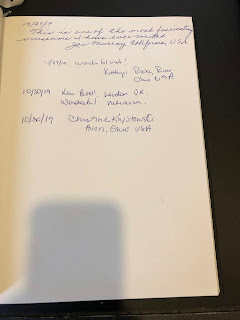 10/27/19
This is one of the most fascinating
museums I have ever visited
Jan Murray California, USA
10/29/19 Wonderful visit!
Kathryn Rocky River
Ohio USA
10/30/19 London UK.
Wonderful museum.
10/30/19 Christine
Avon, Ohio USA